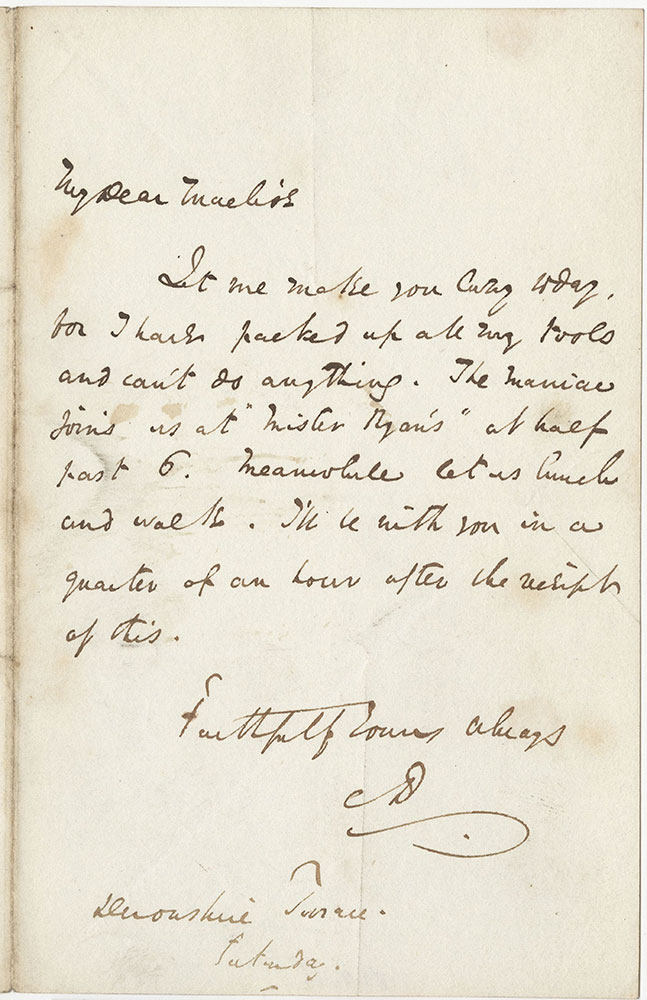 My Dear Maclise
Let me make you lazy today,
for I have packed up all my tools
and can't do anything. The Maniac
joins us at "Mister Ryan's" at half
past 6. Meanwhile let us lunch
and walk. I'll be with you in a
quarter of an hour after the receipt
of this.
Faithfully Yours always
CD
Devonshire Terrace.
Saturday.